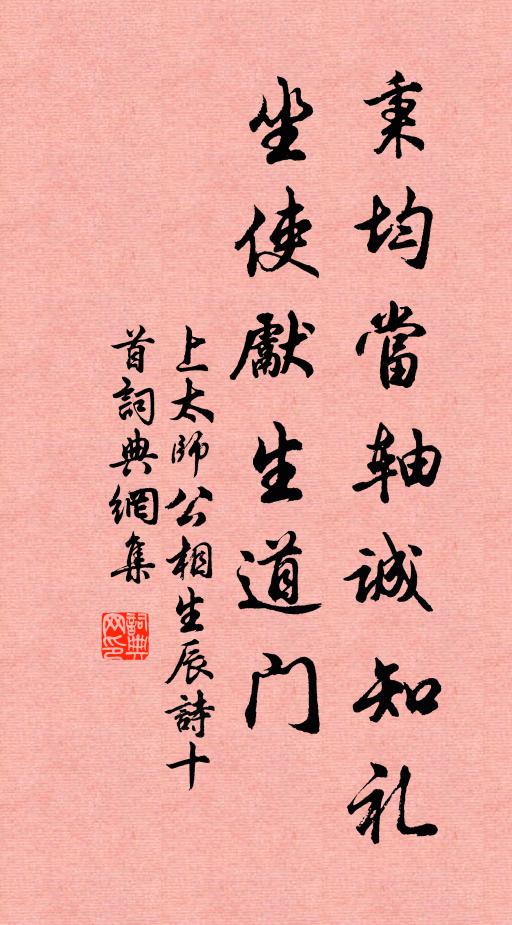 秉均當軸誠知礼
坐使獻生道门
上太师公相生辰詩十
首詞典網集
詞典網印